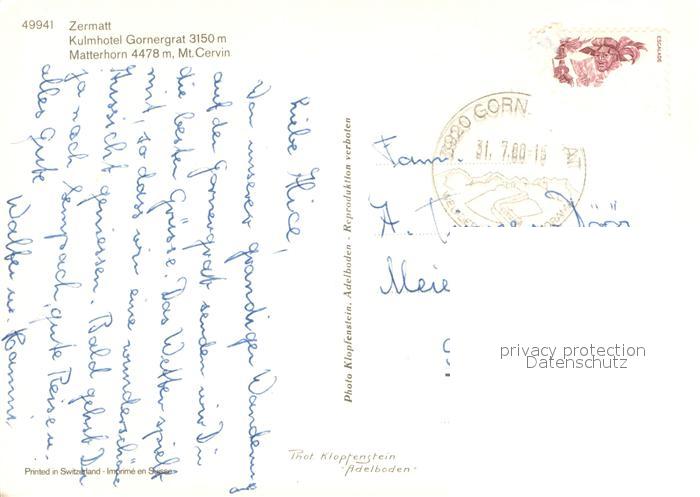 49941 Zermatt
Kulmhotel Gornergrat 3150 m
Matterhorn 4478 m, Mt. Cervin
Liebe Alice,
Von unserer grandigen Wanderung
auf den Gornergrat senden wir Dir
die besten Grüsse. Das Wetter spielt
mit, so dass wir eine wunderschöne
Aussicht geniessen. Bald gehst Du
ja nach Sempach, gute Reise u.
alles Gute
Walter u.
Photo Klopfenstein, Adelboden - Reproduktion verboten
ESCALADE
3920 GORN
31. 7.80-16
Fam.
A.
Meie
privacy protection
Datenschutz
Phot Klopfenstein
-Adelboden-
Printed in Switzerland - Imprimé en Suisse